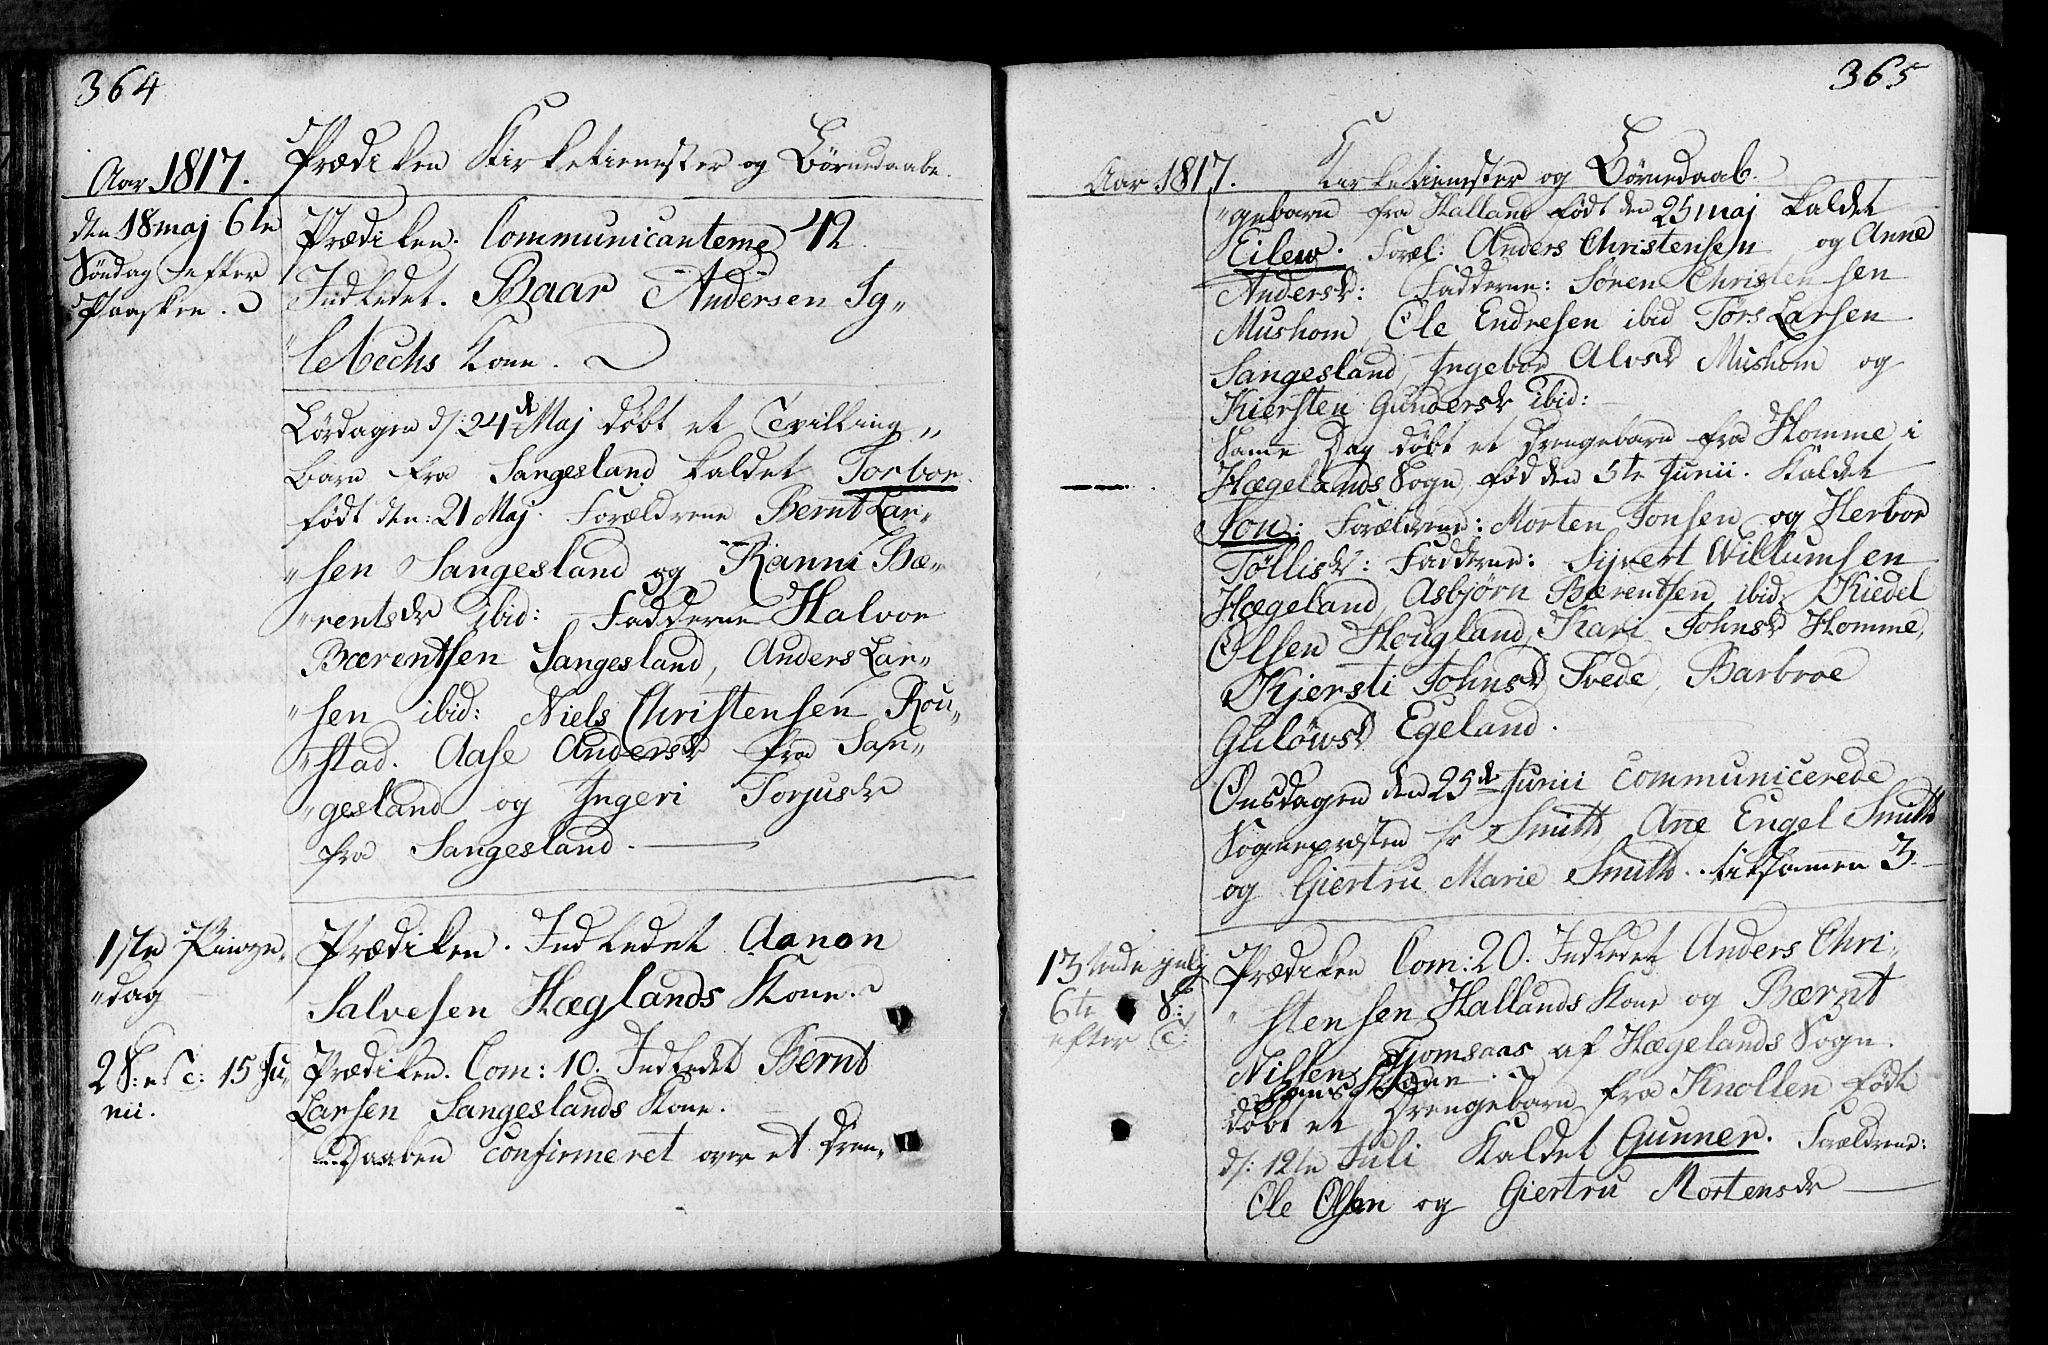 364
Aar 1817. Prædiken Kirketienester og Börnedaabe.
den 18 maj 6te
Söndag efter
Paasken.
Prædiken. Communicanterne 42.
Indledet. Baar Andersen Ig„
„lebechs Kone.
Lördagen d: 24d Maj döbt et Tvilling„
barn fra Sangesland kaldet Torbor.
födt den: 21 Maj. Forældrene Bernt Lar„
„sen Sangesland og Ranni Bæ„
„rentsdr ibid: Fadderne Halvor
Bærentsen Sangesland, Anders Lar„
„sen ibid: Niels Christensen Rou„
„stad. Aase Andersdr fra San„
„gesland og Ingeri Torjusdr
fra Sangesland.
1ste Pinge„
„dag
Prædiken. Indledet Aanon
Salvesen Hæglands Kone.
2 S: e T: 15 Ju„
nii.
Prædiken. Com: 10. Indledt Bernt
Larsen Sangeslands Kone.
Daaben confirmeret over et Dren„
365
Aar 1817. Kirketienester og Börnedaab.
„gebarn fra Halland födt den 25 maj kaldet
Eilew. Foræl: Anders Christensen og Anne
Andersdr: Fadderne: Sören Christensen
Mushom, Ole Endresen ibid Törs Larsen
Sangesland, Ingebor Alvsdr Mushom og
Kiersten Gundersdr ibid:
Same Dag döbt et Drengebarn fra Homme i
Hægelands Sogn, föd den 5te Junii. Kaldet
Jon: Forældrene: Morten Jonsen og Herbor
Töllisdr: Fadderne: Sijvert Willumsen
Hægeland, Asbjörn Bærentsen ibid: Kiedel
Olsen Hougland, Kari Johnsd Homme,
Kjersti Johnsd Tvede, Barbroe
Gulöwsd Egeland.
Onsdagen den 25de Junii communicerede
Sognepræsten hr Smith, Ane Engel Smith
og Giertru Marie Smith.. tilsamen 3
13tende julij
6te S:
efter T:
Prædiken Com: 20. Indledet Anders Chri„
„stensen Hallands Kone og Bærnt
Nilsen Fjomsaas af Hægelands Sogn.
Kone.
döbt et Drengebarn fra Knollen födt
d: 12te Juli Kaldet Gunner. Forældrene:
Ole Olsen og Giertru Mortensdr